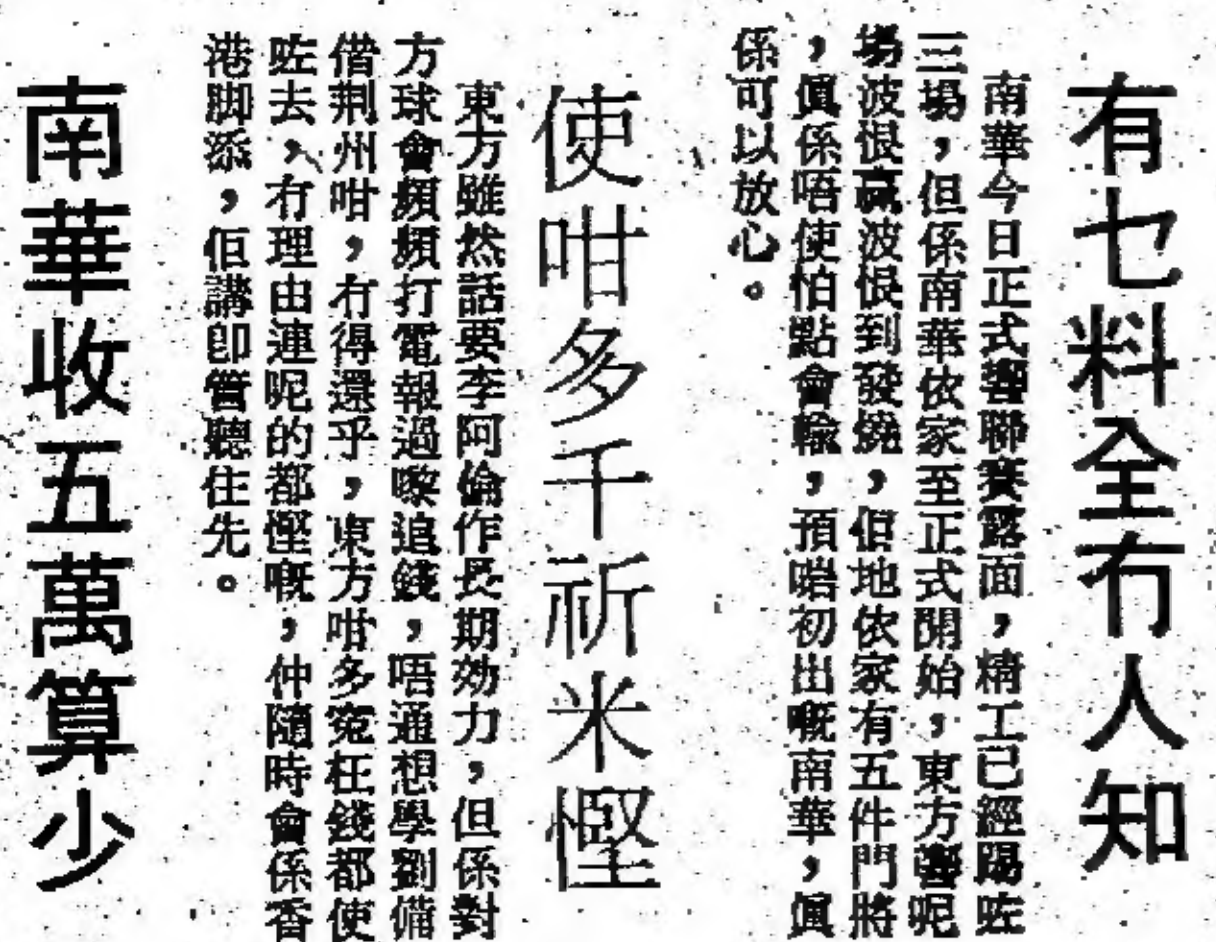 有乜料全冇人知
南華今日正式響聯賽露面，精工已經踢咗
三場，但係南華依家至正式開始，東方響呢
場波恨贏波恨到發燒，佢地依家有五件門將
，眞係唔使怕點會輸，預啱初出嘅南華，眞
係可以放心。
使咁多千祈米慳
東方雖然話要李阿倫作長期効力，但係對
方球會頻頻打電報過嚟追錢，唔通想學劉備
借荆州咁，冇得還乎，東方咁多寃枉錢都使
咗去，冇理由連呢的都慳嘅，仲隨時會係香
港脚添，佢講卽管聽住先。
南華收五萬算少